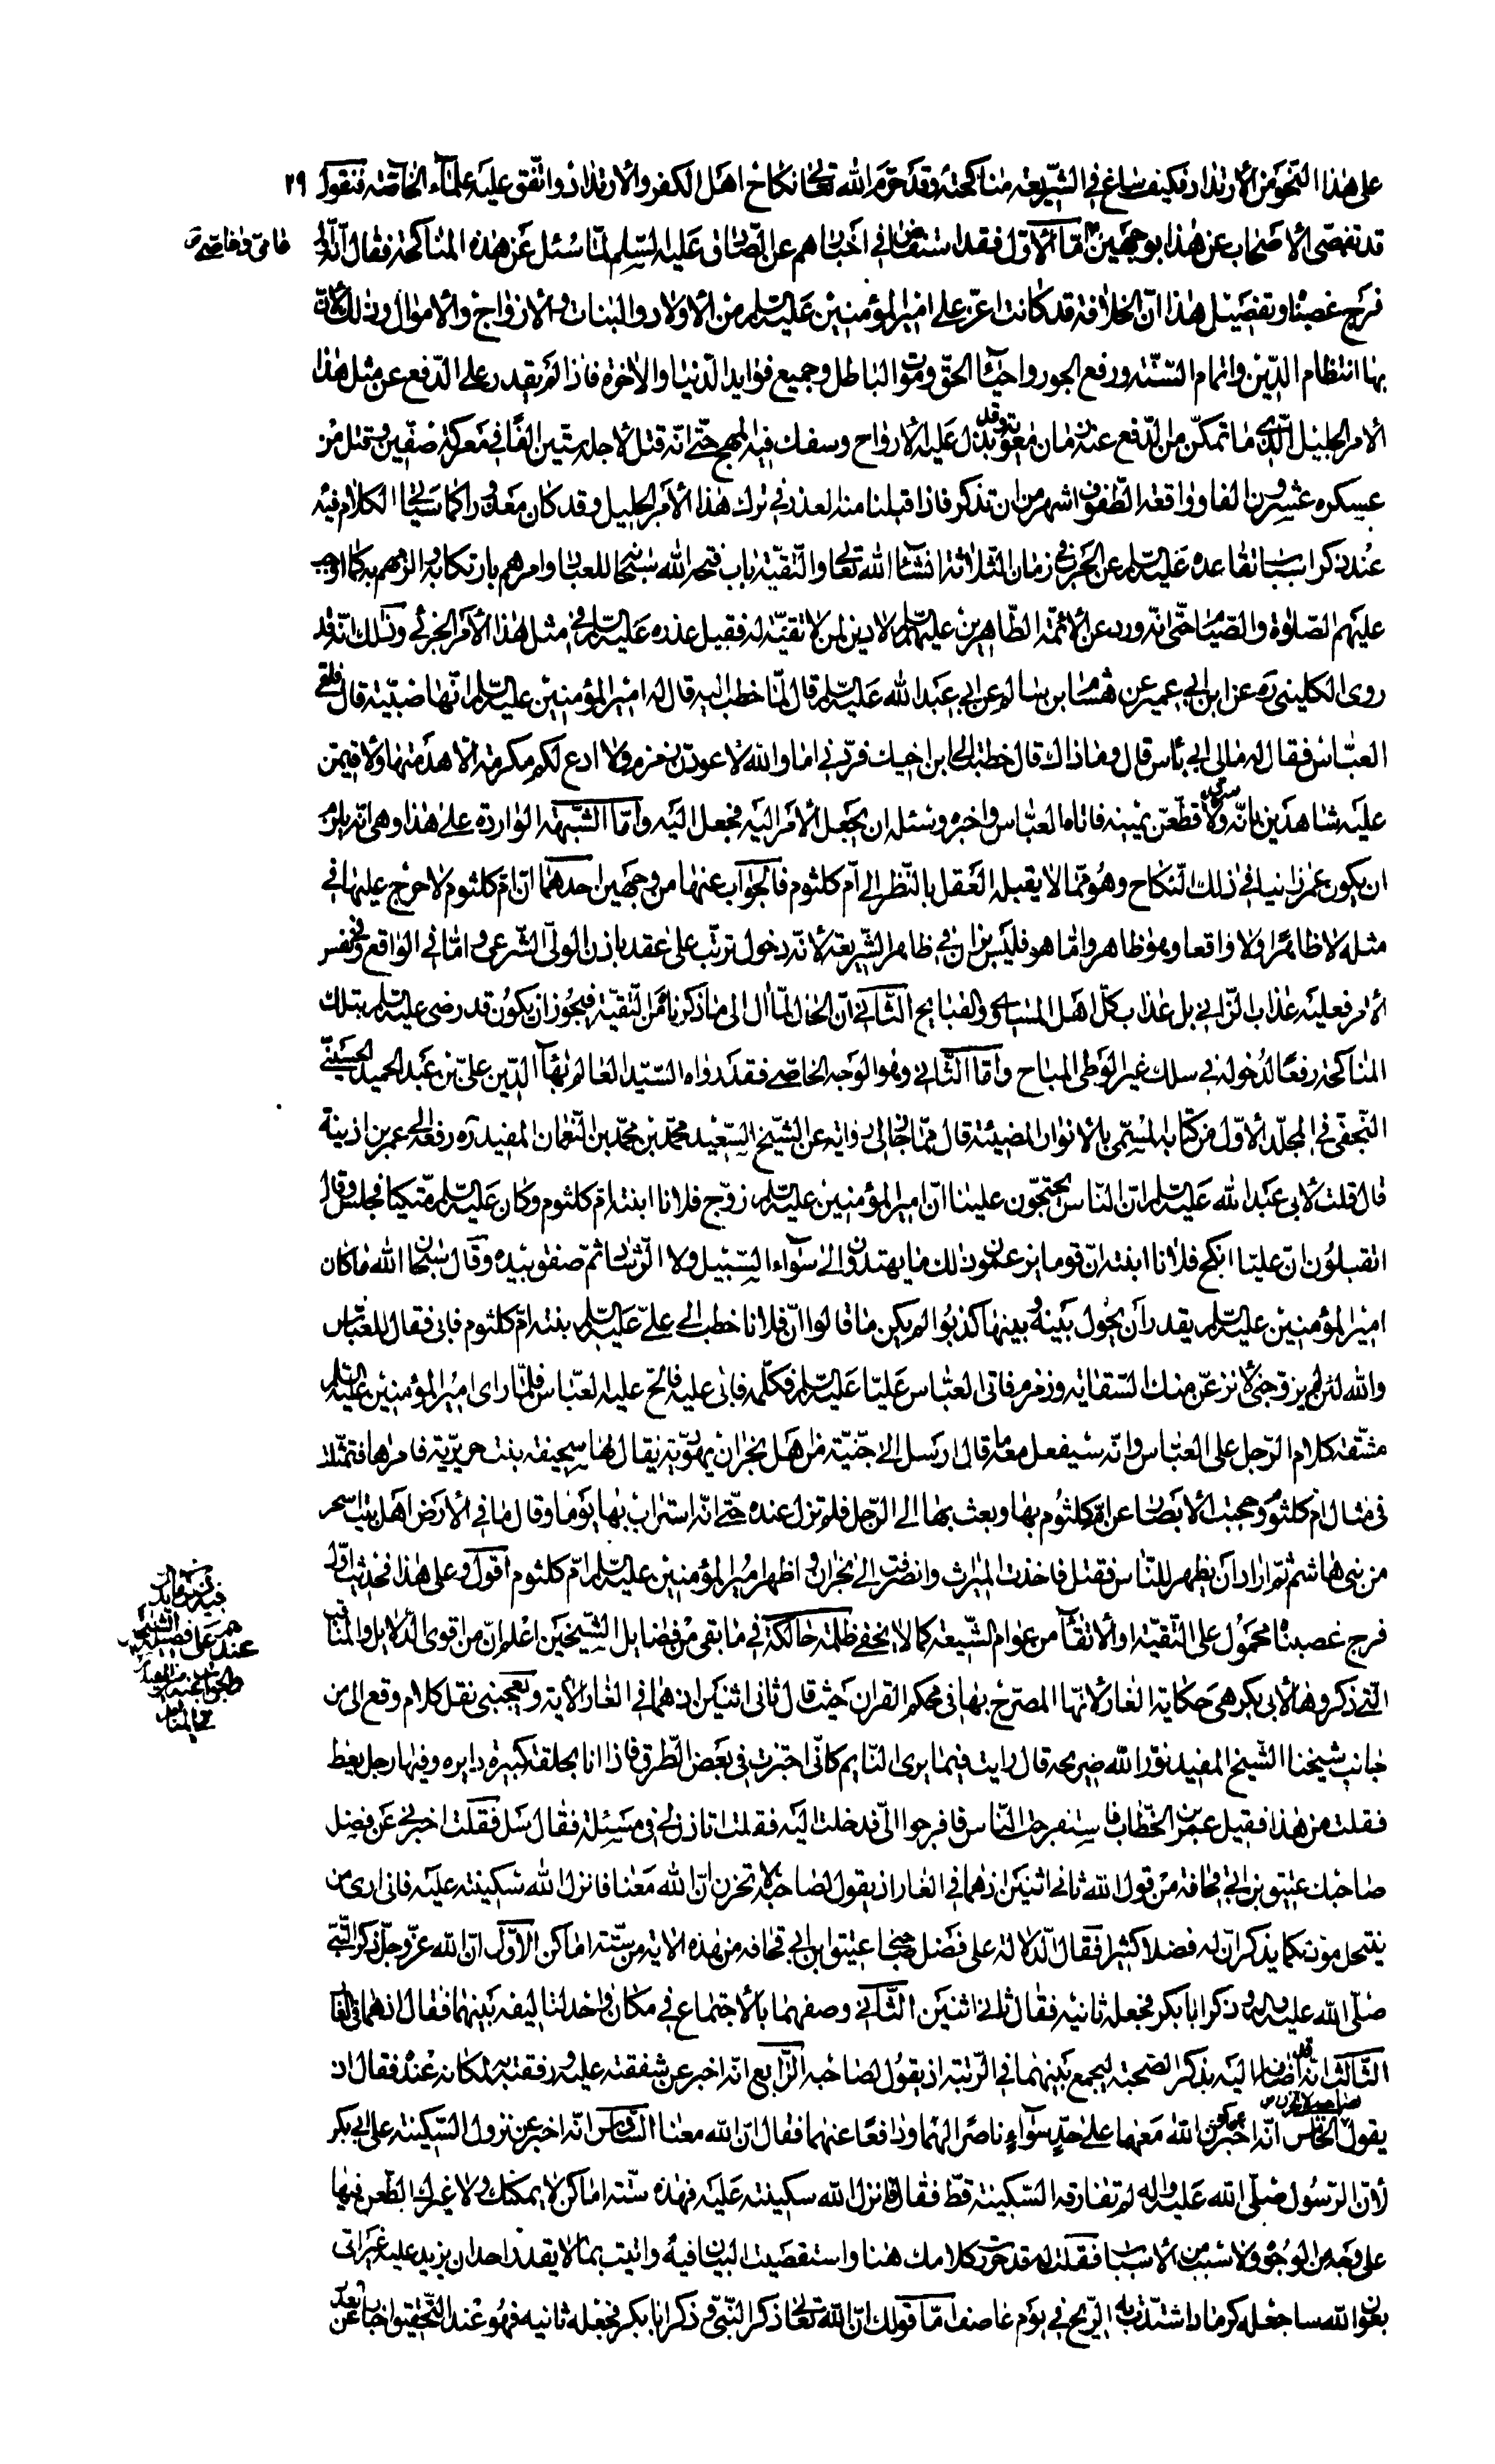 على هذا النحو من الارتداد فكيف ساغ في الشريعة مناكحته وقد حرم الله تعالى نكاح اهل الكفر والارتداد واتفق عليه علماء الخاصة فنقول ٢٩
قد تفصى الاصحاب عن هذا بوجهين اما الاول فقد استفاض في اخبارهم عن الصادق عليه السلم لما سئل عن هذه المناكحة فقال انه اول
عامي وخاصي
فرج غصبناه وتفصيل هذا ان الخلافة قد كانت اعز على امير المؤمنين عليه السلم من الاولاد والبنات والازواج والاموال وذلك لان
بها انتظام الدين واتمام السنة ورفع الجور واحياء الحق وموت الباطل وجميع فوايد الدنيا والاخرة فاذا لم يقدر على الدفع عن مثل هذا
الامر الجليل الذي ما تمكن من الدفع عنه زمان معوية وقد بذل عليه الارواح وسفك فيه المهج حتى انه قتل لاجله ستين الفا في معركة صفين وقتل من
عسكره عشرون الفا وواقعة الطفوف اشهر من ان تذكر فاذا قبلنا منه العذر في ترك هذا الامر الجليل وقد كان معذورا كما سياتي الكلام فيه
عند ذكر اسباب تقاعده عليه السلم عن الحرب في زمان الثلاثة انشاء الله تعالى والتقية باب فتحه الله سبحانه للعباد وامرهم بارتكابه والزمهم به كما اوجب
عليهم الصلوة والصيام حتى انه ورد عن الائمة الطاهرين عليهم السلم لا دين لمن لا تقية له فقبل عذره عليه السلم في مثل هذا الامر الجزئي وذلك انه قد
روى الكليني ره عن ابن ابي عمير عن هشام ابن سالم عن ابي عبد الله عليه السلم قال لما خطب اليه قال له امير المؤمنين عليه السلم انها صبية قال فلقي
العباس فقال له مالي ابي باس قال وما ذاك قال خطبت الى ابن اخيك فردني اما والله لاعودن زمزم ولا ادع لكم مكرمة الا هدمتها ولاقيمن
عليه شاهدين بانه سرق ولاقطعن يمينه فاتاه العباس واخبره وسئله ان يجعل الامر اليه فجعل اليه واما الشبهة الواردة على هذا وهي انه يلزم
ان يكون عمر زانيا في ذلك النكاح وهو مما لا يقبله العقل بالنظر الى ام كلثوم فالجواب عنها من وجهين احدهما ان ام كلثوم لا حرج عليها في
مثله لا ظاهرا ولا واقعا وهو ظاهر واما هو فليس بزان في ظاهر الشريعة لانه دخول ترتب على عقد باذن الولي الشرعي واما في الواقع وفي نفس
الامر فعليه عذاب الزاني بل عذاب كل اهل المساوي والقبايح الثاني ان الحال لما ال الى ما ذكرنا من التقية فيجوز ان يكون قد رضي عليه السلم بتلك
المناكحة رفعا لدخوله في سلك غير الوطي المباح واما الثاني وهو الوجه الخاصي فقد رواه السيد العالم بهاء الدين علي بن عبد الحميد الحسيني
النجفي في المجلد الاول من كتابه المسمى بالانوار المضيئة قال مما جاز لي روايته عن الشيخ السعيد محمد بن محمد بن النعمان المفيد ره رفعه الى عمر بن اذينة
قال قلت لابي عبد الله عليه السلم ان الناس يحتجون علينا ان امير المؤمنين عليه السلم زوج فلانا ابنته ام كلثوم وكان عليه السلم متكيا فجلس وقال
اتقبلون ان عليا انكح فلانا ابنته ان قوما يزعمون ذلك ما يهتدون الى سواء السبيل ولا الرشاد ثم صفق بيده وقال سبحان الله ما كان
امير المؤمنين عليه السلم يقدر ان يحول بينه وبينها كذبوا لم يكن ما قالوا ان فلانا خطب الى علي عليه السلم بنته ام كلثوم فابى فقال للعباس
والله لئن لم يزوجني لانزعن منك السقاية وزمزم فاتى العباس عليا عليه السلم فكلمه فابى عليه فالح عليه العباس فلما راى امير المؤمنين عليه السلم
مشقة كلام الرجل على العباس وانه سيفعل معه ما قال ارسل الى جنية من اهل نجران يهودية يقال لها سحيفة بنت حريرية فامرها فتمثلت
في مثال ام كلثوم وحجبت الابصار عن ام كلثوم بها وبعث بها الى الرجل فلم تزل عنده حتى انه استراب بها يوما وقال ما في الارض اهل بيت اسحر
من بني هاشم ثم اراد ان يظهر للناس فقتل فاخذت الميراث وانصرفت الى نجران واظهر امير المؤمنين عليه السلم ام كلثوم اقول وعلى هذا فحديث اول
فرج غصبناه محمول على التقية او الاتقاء من عوام الشيعة كما لا يخفى ظلمة حالكة في ما بقي من فضايل الشيخين اعلم ان من اقوى الدلايل والمناقب
التي ذكروها لابي بكر هي حكاية الغار لانها المصرح بها في محكم القران حيث قال ثاني اثنين اذ هما في الغار الاية ويعجبني نقل كلام وقع الى من
جانب شيخنا الشيخ المفيد نور الله ضريحه قال رايت فيما يرى النايم كاني اجتزت في بعض الطرق فاذا انا بحلقة كبيرة دايرة وفيها رجل يعظ
فقلت من هذا فقيل عمر بن الخطاب فاستفرجت الناس فافرجوا الي فدخلت اليه فقلت اتاذن لي في مسئلة فقال سل فقلت اخبرني عن فضل
صاحبك عتيق بن ابي قحافة من قول الله ثاني اثنين اذ هما في الغار اذ يقول لصاحبه لا تحزن ان الله معنا فانزل الله سكينته عليه فاني ارى من
ينتحل مودتكما يذكر ان له فضلا كثيرا فقال الدلالة على فضل صاحبنا عتيق ابن ابي قحافة من هذه الاية من ستة اماكن الاول ان الله عز وجل ذكر النبي
صلى الله عليه واله وذكر ابا بكر فجعله ثانيه فقال ثاني اثنين الثاني وصفهما بالاجتماع في مكان واحد لتاليفه بينهما فقال اذ هما في الغار
الثالث انه قد اضافه اليه بذكر الصحبة ليجمع بينهما في الرتبة اذ يقول لصاحبه الرابع انه اخبر عن شفقته عليه ورفقته به لمكانه عنده فقال اذ
يقول لصاحبه لا تحزن الخامس انه اخبر عن كون الله معهما على حد سواء ناصرا لهما ودافعا عنهما فقال ان الله معنا السادس انه اخبر عن نزول السكينة على ابي بكر
لان الرسول صلى الله عليه واله لم تفارقه السكينة قط فقال فانزل الله سكينته عليه فهذه ستة اماكن لا يمكنك ولا غيرك الطعن فيها
على وجه من الوجوه ولا سبب من الاسباب فقلت له قد حررت كلامك هنا واستقصيت البيان فيه واتيت بما لا يقدر احد ان يزيد عليه غير اني
بعون الله ساجعله كرماد اشتدت به الريح في يوم عاصف اما قولك ان الله تعالى ذكر النبي وذكر ابا بكر فجعله ثانيه فهو عند التحقيق اخبار عن